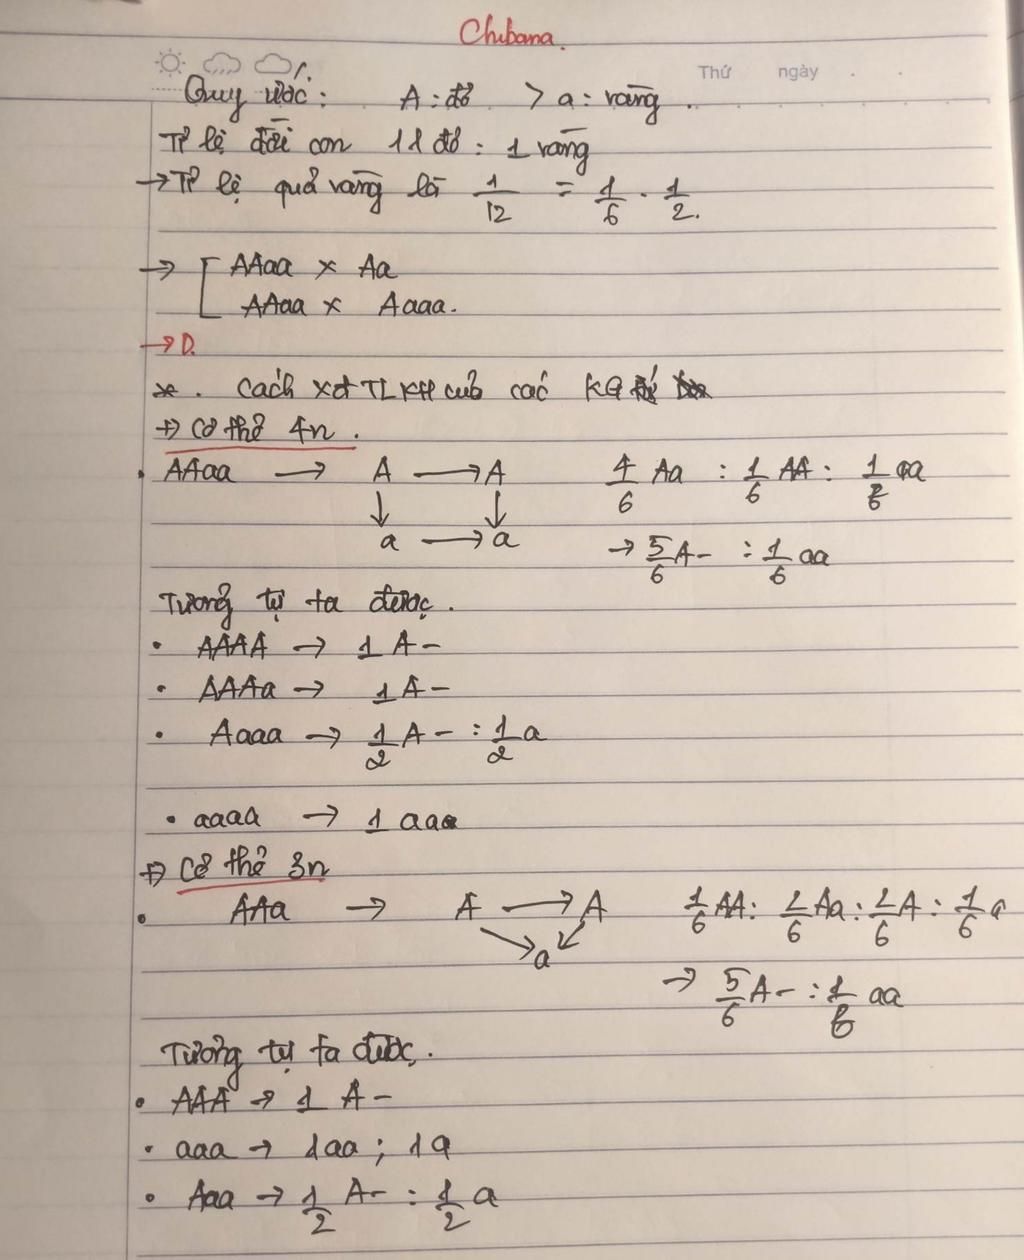 Chibana.
Thứ ngày . .
Quy ước: A: đỏ > a: vàng.
Tỉ lệ đời con 11 đỏ : 1 vàng
→ Tỉ lệ quả vàng là 1/12 = 1/6 . 1/2.
→ [ AAaa × Aa
AAaa × Aaaa.
→ D.
*. Cách xđ TLKH của các KG
+> Cơ thể 4n.
• AAaa → A → A 4/6 Aa : 1/6 AA : 1/6 aa
↓ ↓
a → a → 5/6 A- : 1/6 aa
Tương tự ta được.
• AAAA → 1 A-
• AAAa → 1A-
• Aaaa → 1/2 A- : 1/2 a
• aaaa → 1 aa
+> Cơ thể 3n
• AAa → A → A 1/6 AA : 2/6 Aa : 2/6 A : 1/6 a
↘ a ↙
→ 5/6 A- : 1/6 aa
Tương tự ta được.
• AAA → 1 A-
• aaa → 1aa ; 1a
• Aaa → 1/2 A- : 1/2 a